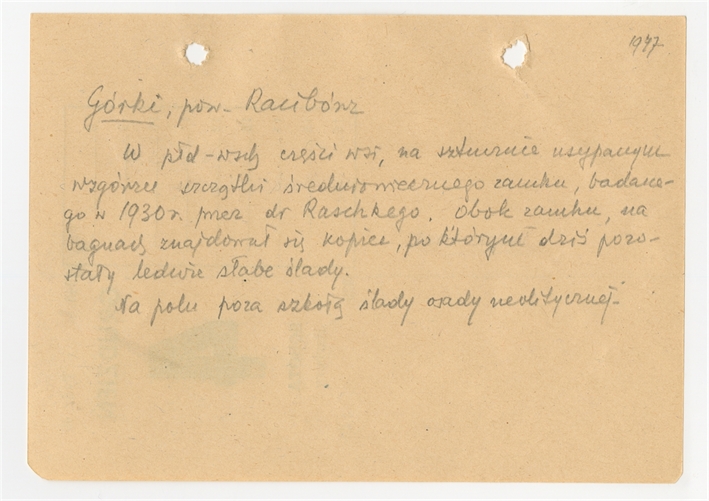 1947
Górki, pow. Racibórz
W płd-wsch części wsi, na sztucznie usypanym
wzgórzu szczątki średniowiecznego zamku, badane-
go w 1930 r. przez dr Raschkego. Obok zamku, na
bagnach znajdował się kopiec, po którym dziś pozo-
stały ledwie słabe ślady.
Na polu poza szkołą ślady osady neolitycznej.